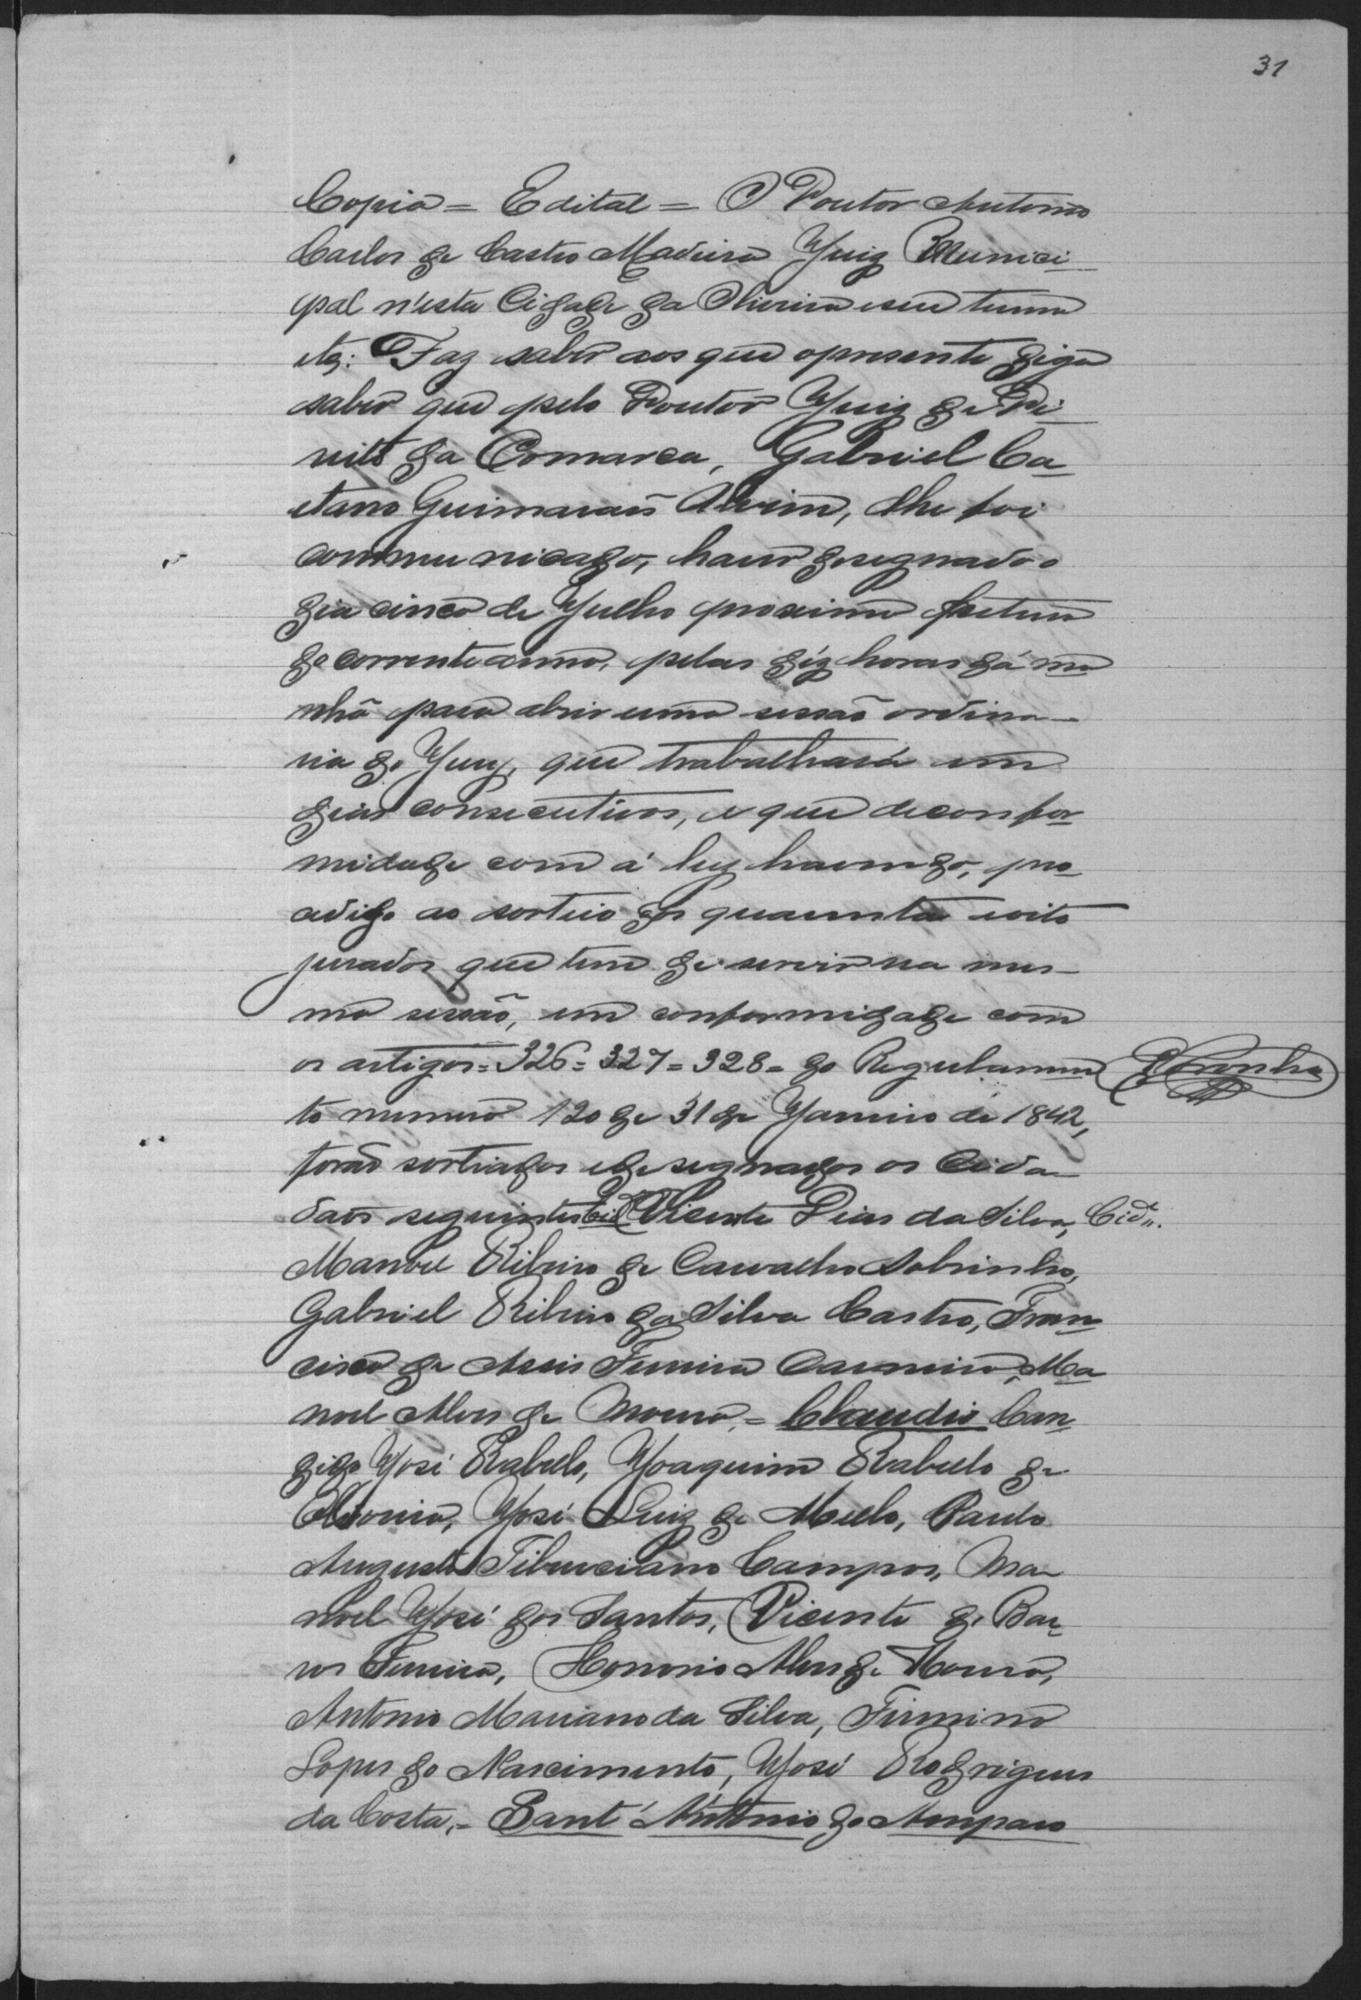 31
Copia = Edital = O Doutor Antonio
Carlos de Castro Madeira Juiz Munici-
pal n'esta Cidade da Oliveira e seu termo
etc: Faz saber aos que o presente
saber que pelo Doutor Juiz de Di-
reito da Comarca, Gabriel Ca-
etano Guimarães Alvim, lhe foi
communicado, haver designado o
dia cinco de Julho proximo futuro
do corrente anno, pelas déz horas dá ma-
nhã para abrir uma sessaõ ordina-
ria do Jury, que trabalhará em
dias consecutivos, e que de confor-
midade com á ley havendo, pro-
cedido ao sorteio dos quarenta e oito
jurados que tem de servir na mes-
ma sessaõ, em conformidade com
os artigos = 326 = 327 = 328 = do Regulamen-
to numero 120 de 31 de Janeiro de 1842,
foraõ sortiados e designados os Cida-
daõs seguintes Vicente Dias da Silva, Cid.e
Manoel Ribeiro de Carvalho Sobrinho,
Gabriel Ribeiro da Silva Castro, Fran-
cisco de Assis Ferreira Carneiro, Ma-
noel Alves de Moura, = Claudio Can-
dido José Rabello, Joaquim Rabello de
José Luiz de Mello, Paulo
Augusto Tiburciano Campos, Ma-
noel José dos Santos, Vicente de Bar-
ros Ferreira, Honorio Alves de Moura,
Antonio Mariano da Silva, Firmino
Lopes do Nascimento, José Rodrigues
da Costa, = Sant' Antonio do Amparo